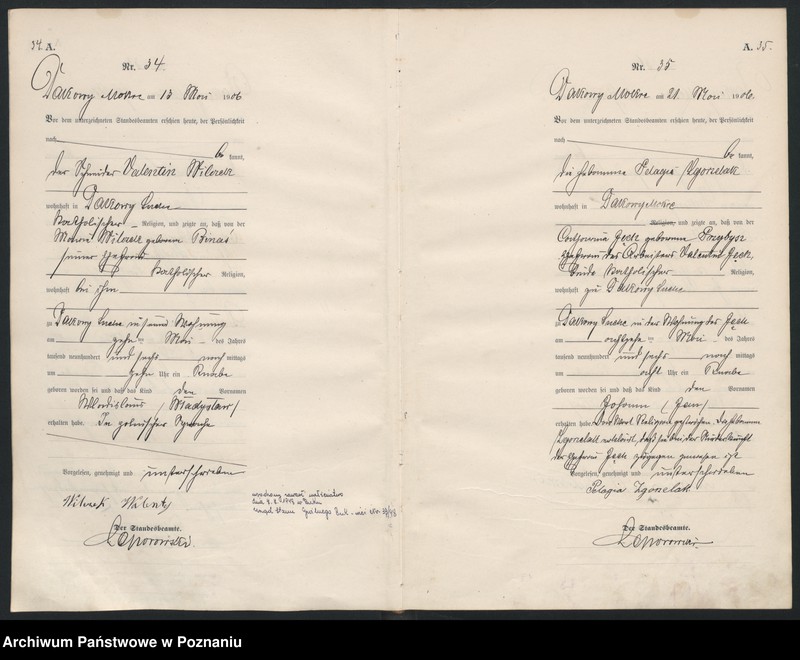 34. A.
Nr. 34
Dakowy Mokre am 13 Mai 1906
Vor dem unterzeichneten Standesbeamten erschien heute, der Persönlichkeit
nach
be kannt,
der Schneider Valentin
wohnhaft in Dakowy Suche
Katholischer Religion, und zeigte an, daß von der
geborene
seiner Ehefrau
Katholischer Religion,
wohnhaft bei ihm
zu Dakowy Suche in seiner Wohnung
am zehn ten Mai des Jahres
tausend neunhundert und sechs nach mittags
um zehn Uhr ein Knabe
geboren worden sei und daß das Kind den Vornamen
Wladislaus / Władysław /
erhalten habe. In polnischer Sprache
Vorgelesen, genehmigt und unterschrieben
Der Standesbeamte.
A. 35.
Nr. 35
Dakowy Mokre am 21. Mai 1906.
Vor dem unterzeichneten Standesbeamten erschien heute, der Persönlichkeit
nach
be kannt,
die Hebamme Pelagia Zgonelak
wohnhaft in Dakowymokre
Religion, und zeigte an, daß von der
geborene Przybysz
Ehefrau des Arbeiters Valentin
beide Katholischer Religion,
wohnhaft zu Dakowy Suche
zu Dakowy Suche in der Wohnung der
am achtzehn ten Mai des Jahres
tausend neunhundert und sechs nach mittags
um acht Uhr ein Knabe
geboren worden sei und daß das Kind den Vornamen
Johann / Jan /
erhalten habe. Das Wort Religion gestrichen. Die Hebamme
Zgonelak erklärt, daß sie bei der Niederkunft
der Ehefrau zugegen gewesen ist
Vorgelesen, genehmigt und unterschrieben
Pelagia Zgonelak
Der Standesbeamte.
Archiwum Państwowe w Poznaniu